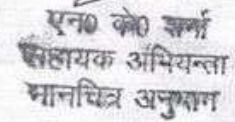 एन० के० शर्मा
सहायक अभियन्ता
मानचित्र अनुभाग